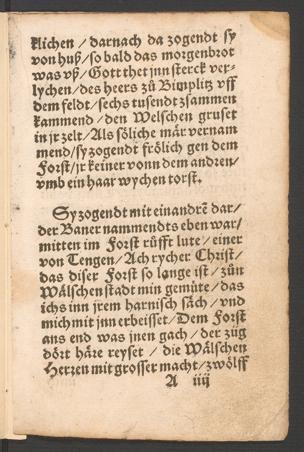 klichen / darnach da zogendt sy
von huß / so bald das morgenbrot
was vß / Gott thet jnn sterck ver-
lychen / des heers zů Bimplitz vff
dem feldt / sechs tusendt zsammen
kammend / den Welschen gruset
in jr zelt / Als söliche mär vernam
mend / sy zogendt frölich gen dem
Forst / jr keiner vonn dem andren /
vmb ein haar wychen torst.
Sy zogendt mit einandrē dar /
der Baner nammendts eben war /
mitten im Forst růfft lute / einer
von Tengen / Ach rycher Christ /
das diser Forst so lange ist / zün
Wälschen stadt min gemüte / das
ichs inn jrem harnisch säch / vnd
mich mit jnn erbeisset / Dem Forst
ans end was jnen gach / der züg
dört häre reyset / die Wälschen
Hertzen mit grosser macht / zwölff
A iiij